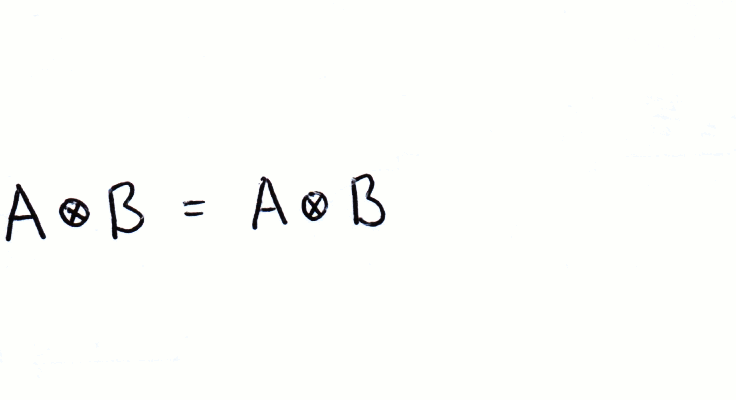 A ⊗ B = A ⊗ B